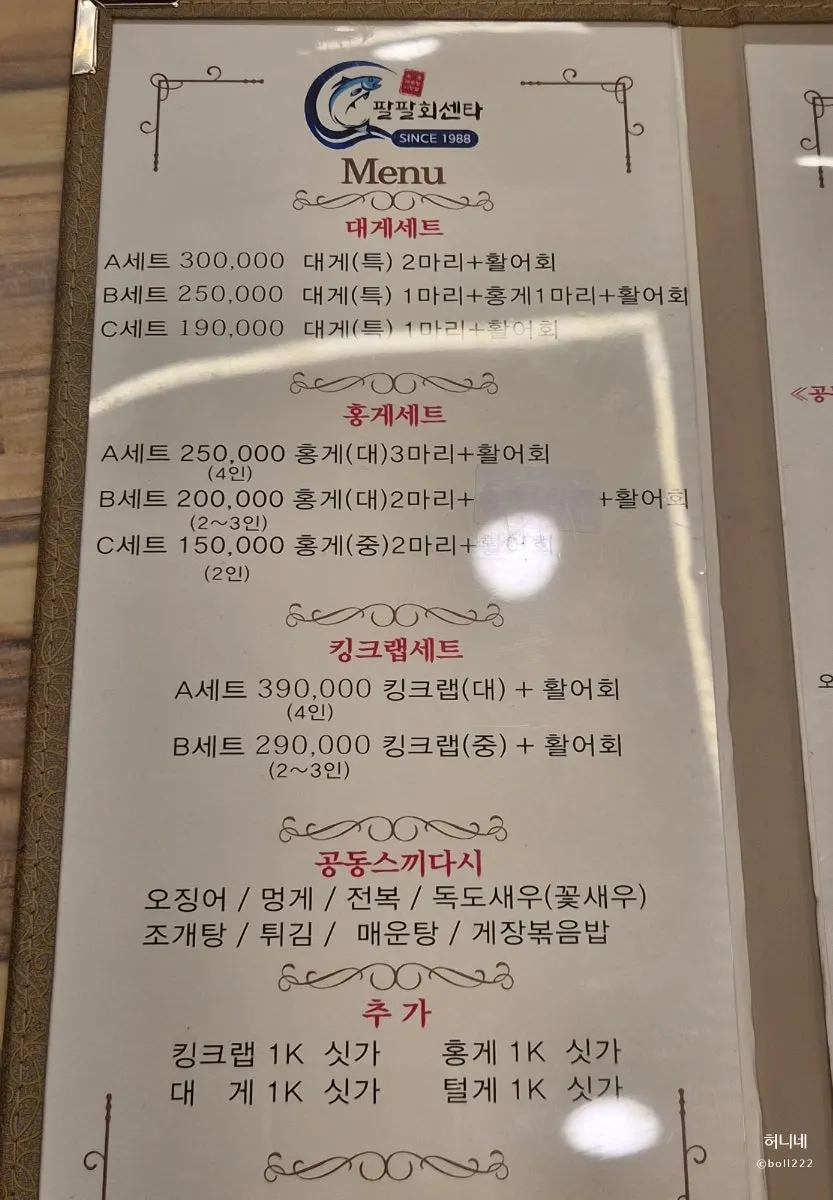 팔팔회센타
SINCE 1988
Menu
대게세트
A세트 300,000 대게(특) 2마리+활어회
B세트 250,000 대게(특) 1마리+홍게1마리+활어회
C세트 190,000 대게(특) 1마리+활어회
홍게세트
A세트 250,000 홍게(대)3마리+활어회
(4인)
B세트 200,000 홍게(대)2마리+ +활어회
(2~3인)
C세트 150,000 홍게(중)2마리+활어회
(2인)
킹크랩세트
A세트 390,000 킹크랩(대) + 활어회
(4인)
B세트 290,000 킹크랩(중) + 활어회
(2~3인)
공동스끼다시
오징어 / 멍게 / 전복 / 독도새우(꽃새우)
조개탕 / 튀김 / 매운탕 / 게장볶음밥
추 가
킹크랩 1K 싯가 홍게 1K 싯가
대 게 1K 싯가 털게 1K 싯가
≪공
오
허니네
©boll222